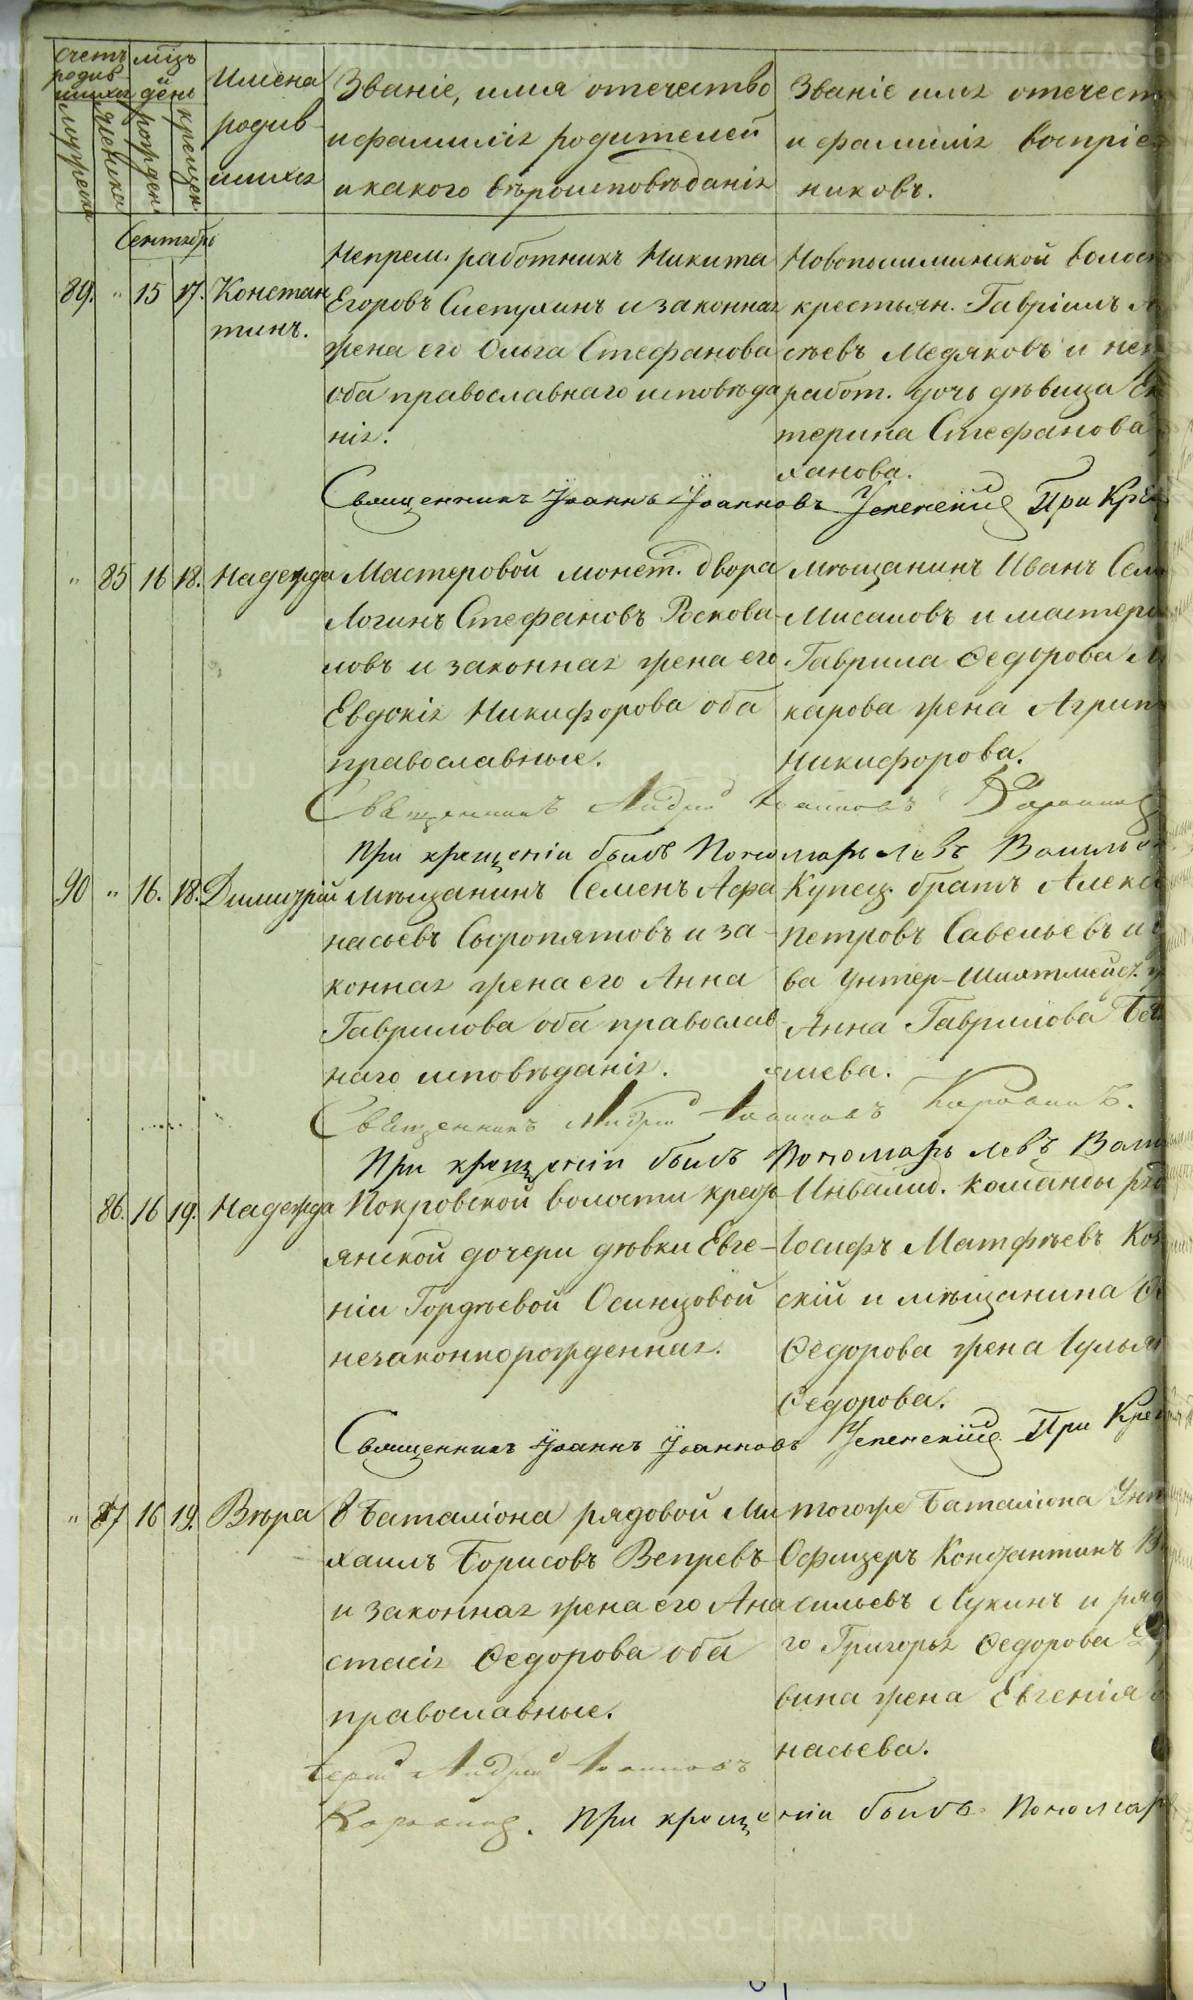 Счетъ родив-шихся
мужеска
женска
м͠цъ и день
рожден
крещен
Имена
родив-
шихся
Званіе, имя отечество
и фамилія родителей
и какого вѣроисповѣданія
Званіе имя отечест
и фамилія воспріе
никовъ.
Сентябрь
89. " 15 17. Констан
тинъ.
Непрем. работникъ Никита
Егоровъ и законная
жена его Ольга Стефанова
оба православнаго исповѣда
нія.
волос
крестьян. Гавріилъ А
сѣевъ Медяковъ и неп
работ. дочь дѣвица Ек
терина Стефанова
ханова.
Священникъ Іоаннъ Іоанновъ Успенскій При Кре
" 85 16 18. Надежда
Мастеровой монет. двора
Логинъ Стефановъ Роскова-
ловъ и законная жена его
Евдокія Никифорова оба
православные.
мѣщанинъ Иванъ Сем
Мисаловъ и мастеро
Гаврила Федорова М
карова жена Агрип
Никифорова.
Священникъ Андрей Іоанновъ
При крещеніи былъ Пономарь Левъ Василье
90 " 16. 18. Димитрій
Мѣщанинъ Семенъ Афа
насьевъ Сыропятовъ и за-
конная жена его Анна
Гаврилова оба православ-
наго исповѣданія.
Купец. братъ Алекс
Петровъ Савельевъ и
ва Унтер-Шихтмейс.
Анна Гаврилова
шева.
Священникъ Андрей Іоанновъ
При крещеніи былъ Пономарь Левъ Васи
86. 16 19. Надежда
Покровской волости крест-
янской дочери дѣвки Евге-
ніи Гордѣевой Осинцовой
незаконнорожденная.
Инвалид. команды ряд
Іосифъ Матфѣевъ Ко
скій и мѣщанина
Федорова жена Іульян
Федорова.
Священникъ Іоаннъ Іоанновъ Успенскій При Кре
" 87 16 19. Вѣра
8 Баталіона рядовой Ми
хаилъ Борисовъ Вепревъ
и законная жена его Ана
стасія Федорова оба
православные.
тогоже Баталіона Унт
Офицеръ Константинъ В
сильевъ Лукинъ и ряд
го Григорья Федорова
вина жена Евгенія
насьева.
Іерей Андрей Іоанновъ
При крещеніи былъ Пономар
METRIKI.GASO-URAL.RU